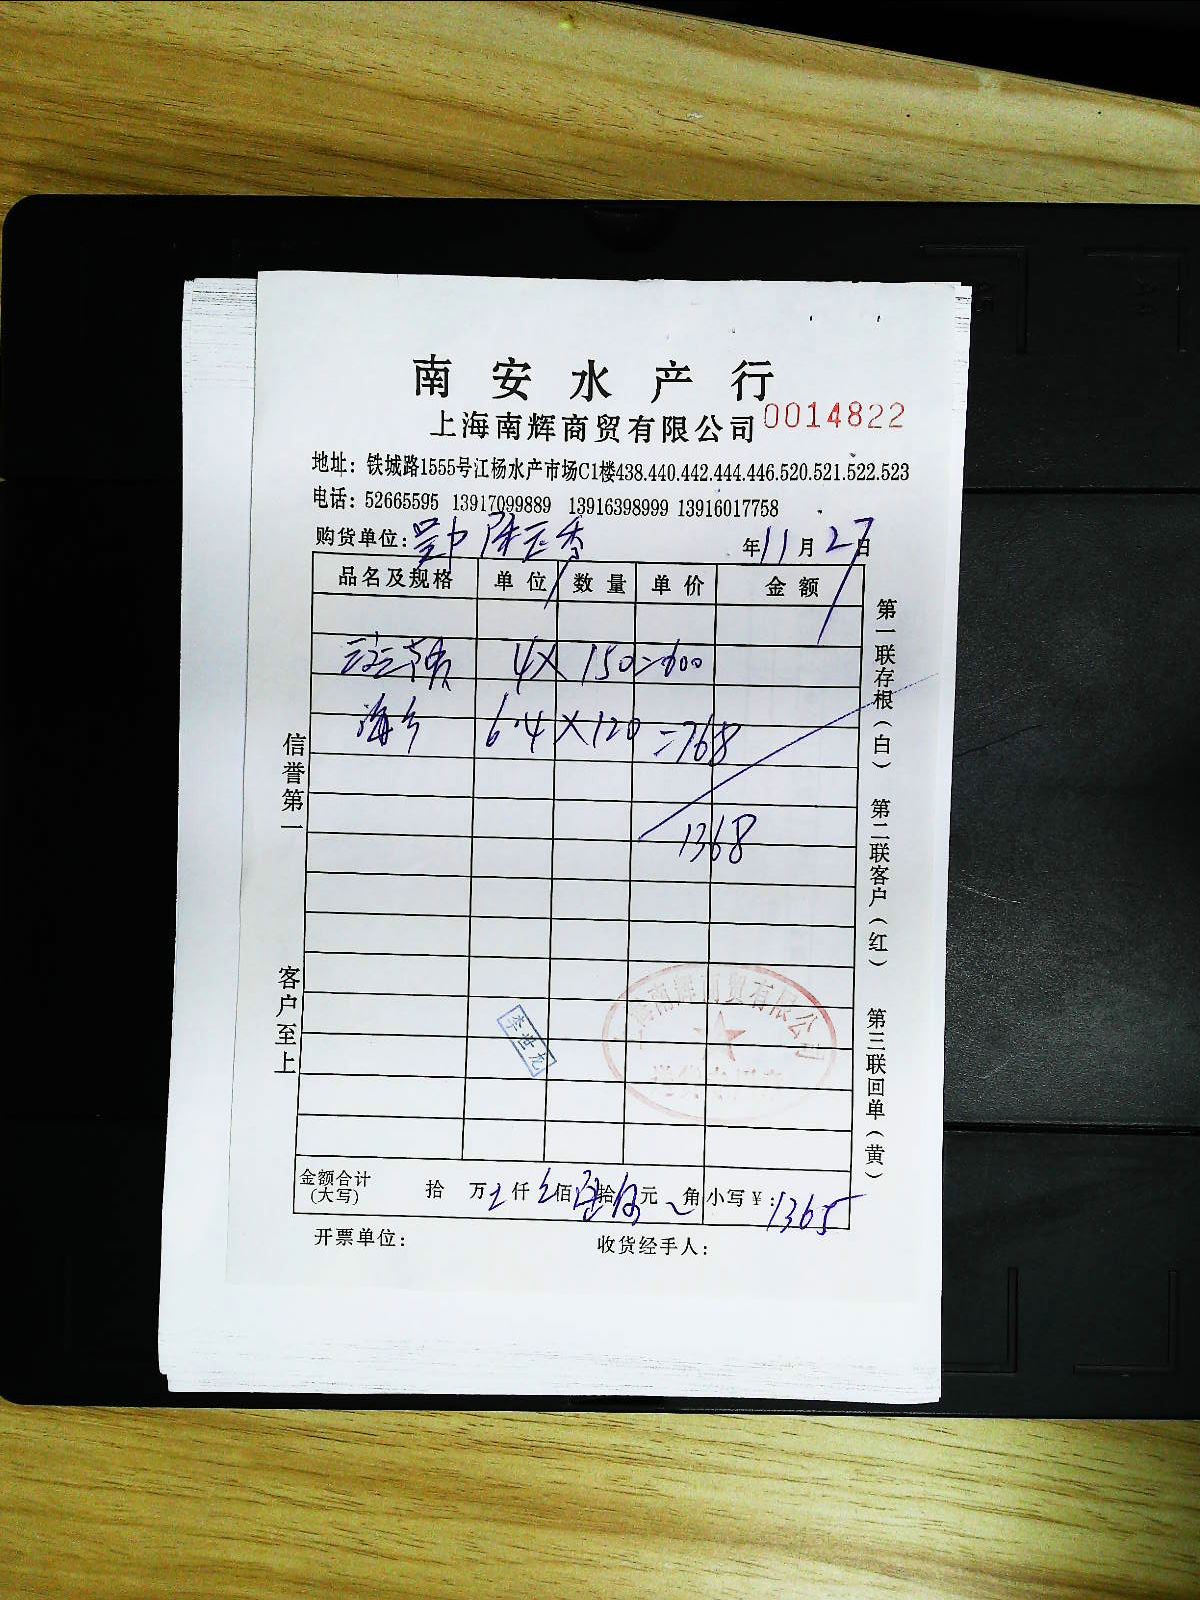 南安水产行
上海南辉商贸有限公司 0014822
地址：铁城路1555号江杨水产市场C1楼438.440.442.444.446.520.521.522.523
电话：52665595 13917099889 13916398999 13916017758
购货单位： 年11月27日
品名及规格 单位 数量 单价 金额
4×150=600
6.4×120=768
1368
信誉第一
客户至上
第一联存根（白） 第二联客户（红） 第三联回单（黄）
上海南辉商贸有限公司
李世龙
金额合计（大写） 拾 万 仟 佰 拾 元 角 小写￥：1365
开票单位： 收货经手人：